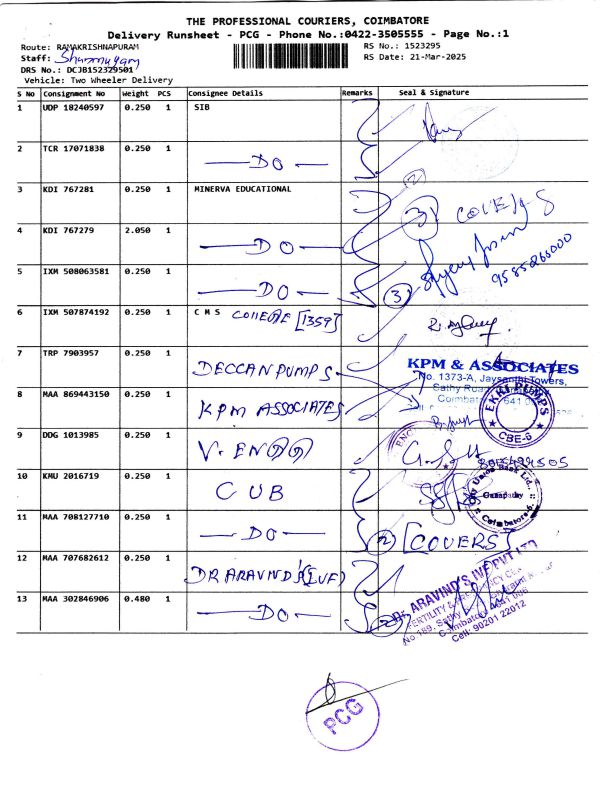 THE PROFESSIONAL COURIERS, COIMBATORE
Delivery Runsheet - PCG - Phone No.:0422-3505555 - Page No.:1
Route: RAMAKRISHNAPURAM
RS No.: 1523295
Staff: Shanmugam
RS Date: 21-Mar-2025
DRS No.: DCJB152329501
Vehicle: Two Wheeler Delivery
S No Consignment No Weight PCS Consignee Details Remarks Seal & Signature
1 UDP 18240597 0.250 1 SIB
2 TCR 17071838 0.250 1 DO
(2)
3 KDI 767281 0.250 1 MINERVA EDUCATIONAL
3) COVERS
4 KDI 767279 2.050 1 DO
9585266000
5 IXM 508063581 0.250 1 DO
(3)
6 IXM 507874192 0.250 1 C M S COLLEGE [1359]
7 TRP 7903957 0.250 1 DECCAN PUMPS
KPM & ASSOCIATES
No. 1373-A, Jaysanthi Towers,
Sathy Road
Coimbatore 641 0
EKKI PUMPS
CBE-6
8 MAA 869443150 0.250 1 KPM ASSOCIATES
9 DDG 1013985 0.250 1
10 KMU 2016719 0.250 1 CUB
City Union Bank Ltd.,
Ganapathy
Coimbatore-6.
11 MAA 708127710 0.250 1 DO
(2) [COVERS]
12 MAA 707682612 0.250 1 DR ARAVIND'S (IVF)
13 MAA 302846906 0.480 1 DO
(2)
Dr. ARAVIND'S IVF PVT LTD
FERTILITY &
No 189, Sathy
Coimbatore 641 006
Cell: 90201 22012
PCG